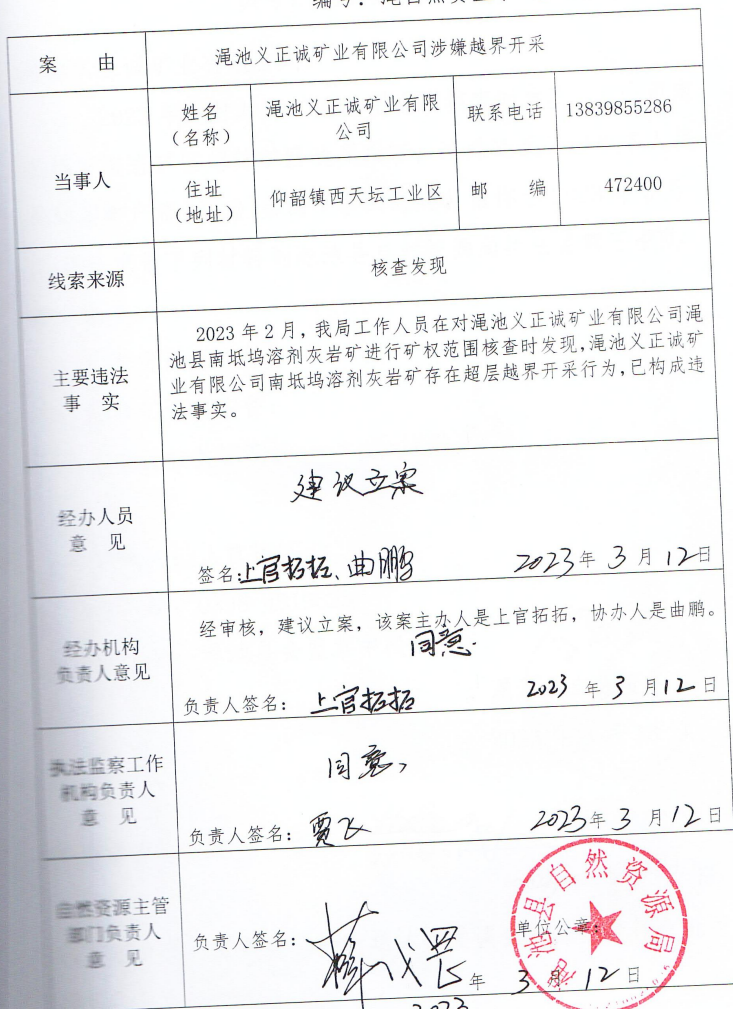 案 由
渑池义正诚矿业有限公司涉嫌越界开采
当事人
姓名
（名称）
渑池义正诚矿业有限
公司
联系电话
13839855286
住址
（地址）
仰韶镇西天坛工业区
邮 编
472400
线索来源
核查发现
主要违法
事 实
2023 年 2 月，我局工作人员在对渑池义正诚矿业有限公司渑
池县南坻坞溶剂灰岩矿进行矿权范围核查时发现，渑池义正诚矿
业有限公司南坻坞溶剂灰岩矿存在超层越界开采行为，已构成违
法事实。
经办人员
意 见
建议立案
签名：上官拓拓、曲鹏 2023 年 3 月 12 日
经办机构
负责人意见
经审核，建议立案，该案主办人是上官拓拓，协办人是曲鹏。
同意.
负责人签名： 上官拓拓 2023 年 3 月 12 日
执法监察工作
机构负责人
意 见
同意、
负责人签名： 贾飞 2023 年 3 月 12 日
自然资源主管
部门负责人
意 见
负责人签名：
单位公章：
年 3 月 12 日
2023
渑池县自然资源局